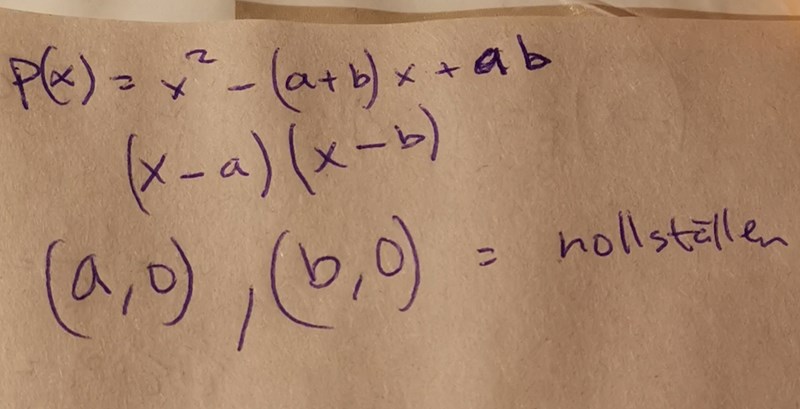 P(x) = x² - (a+b)x + ab
(x-a)(x-b)
(a,0), (b,0) = nollställen